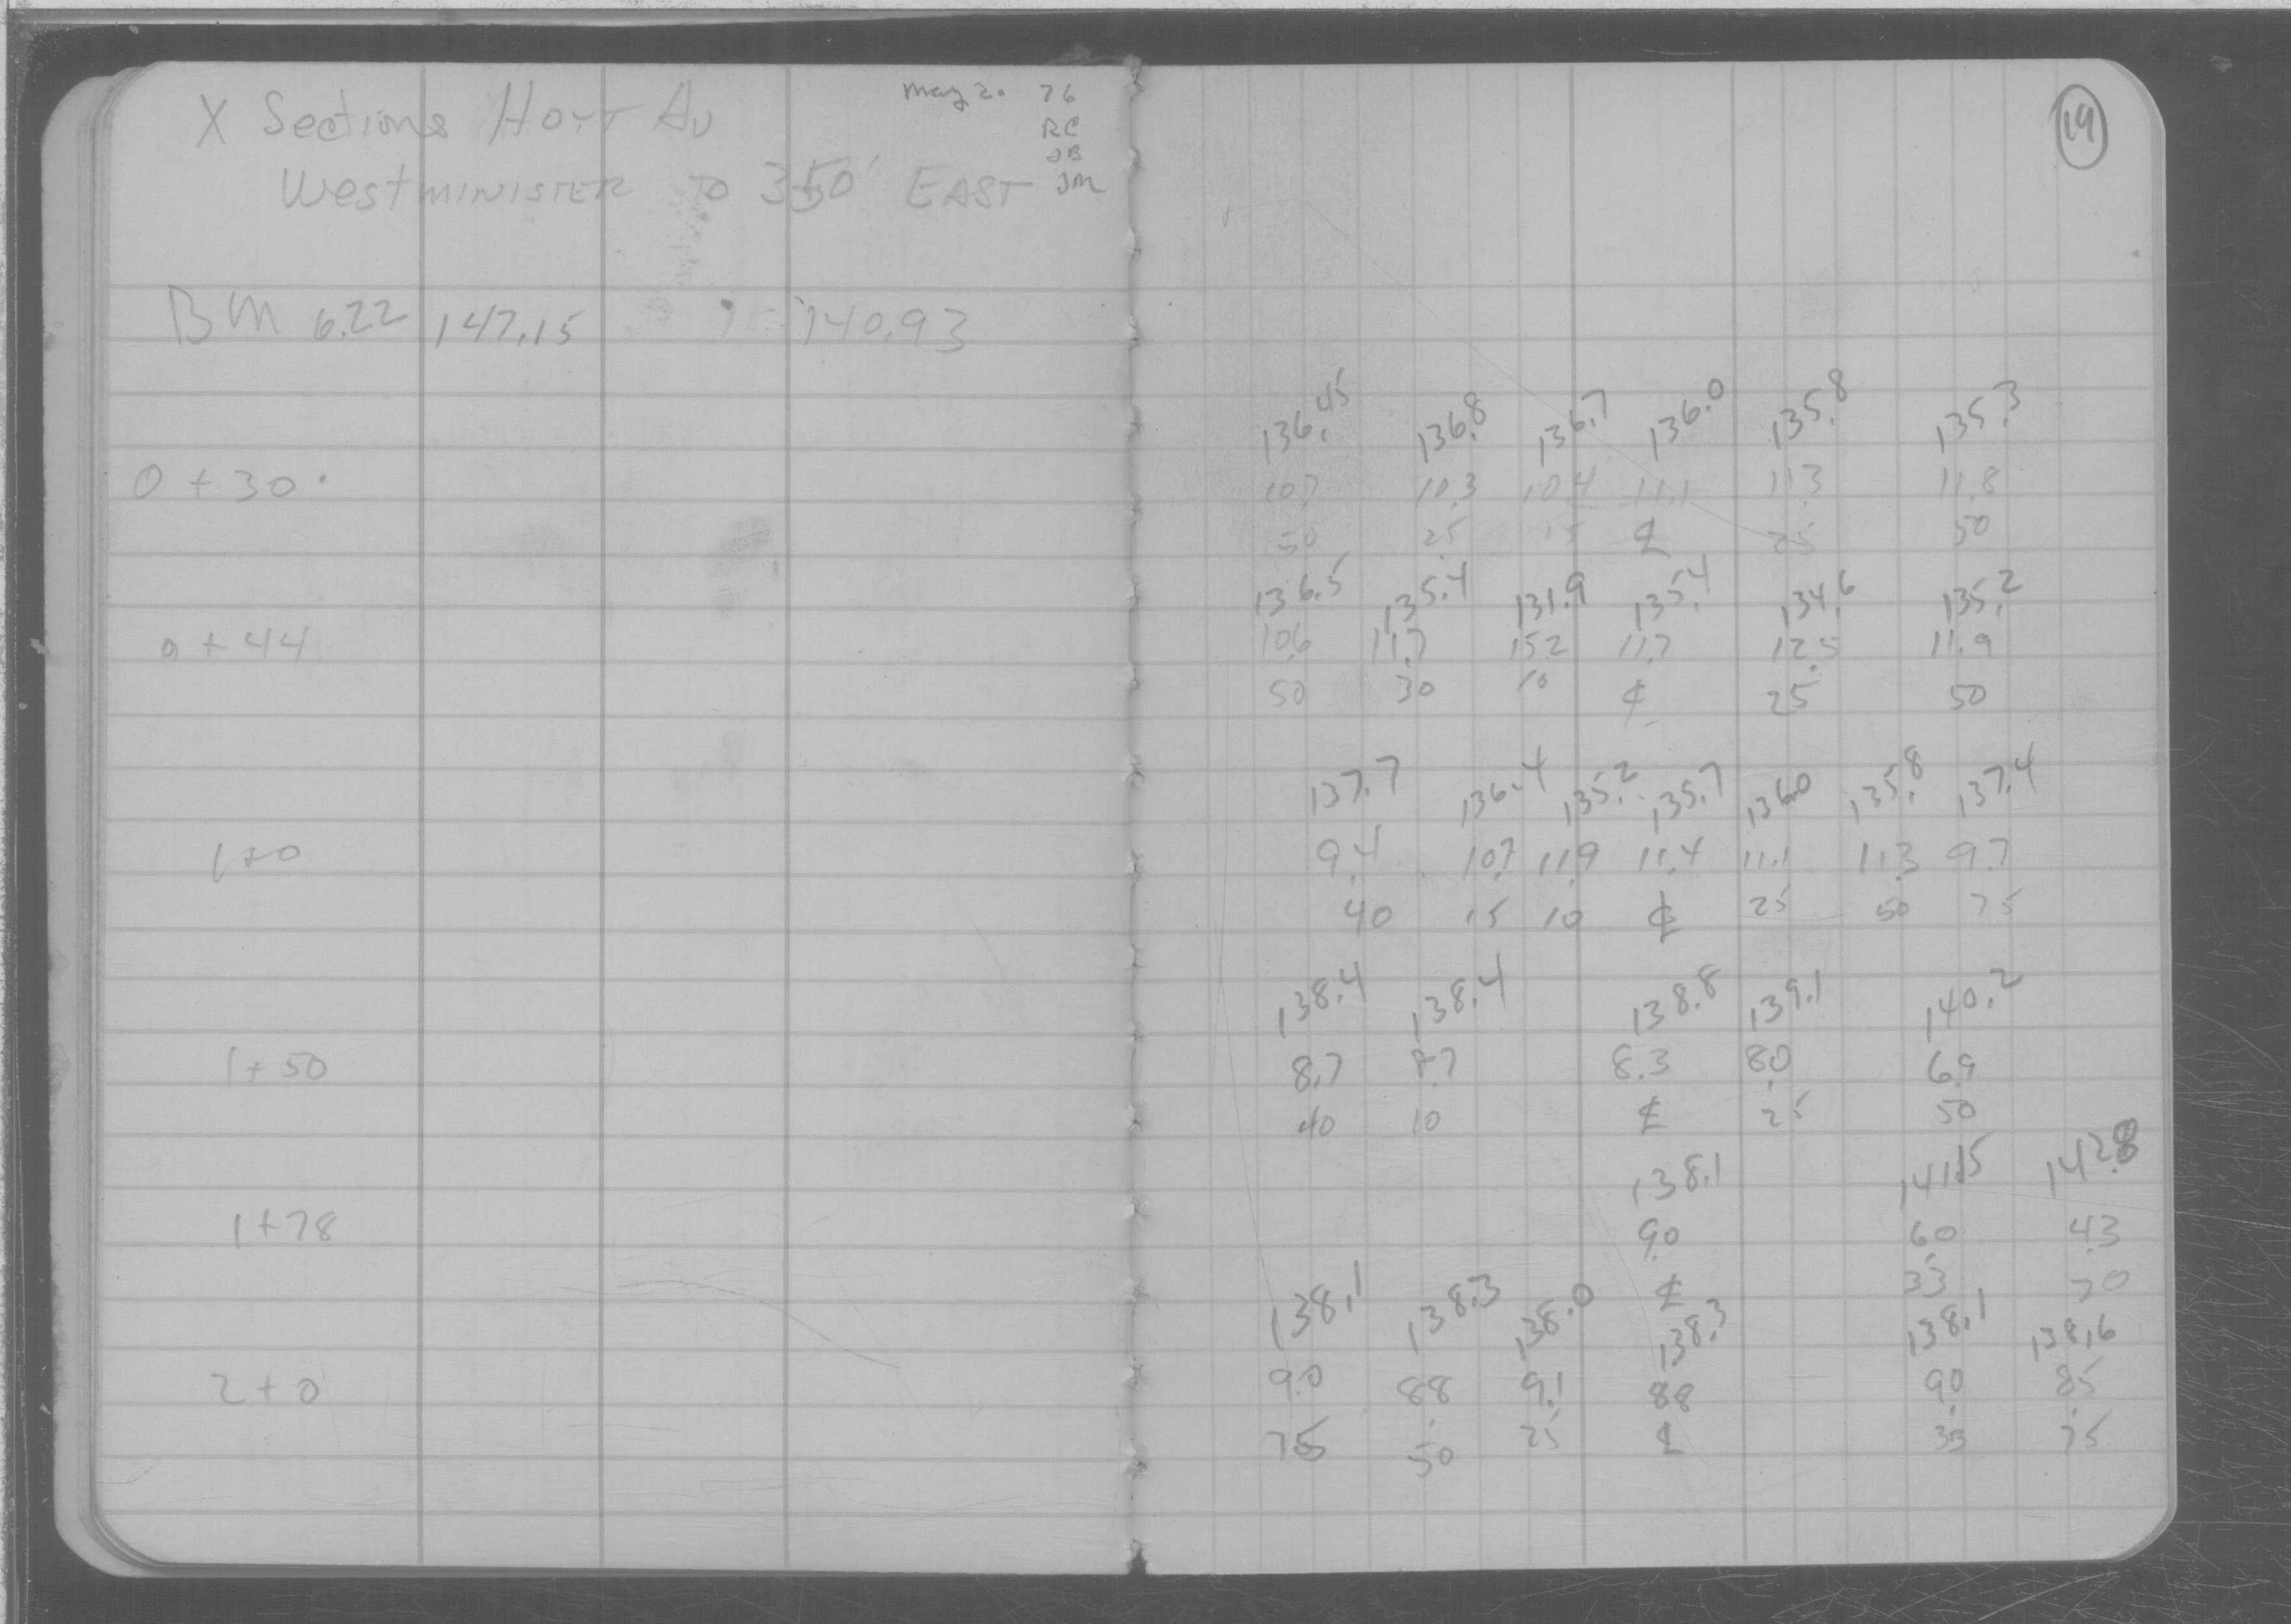 X Sections Hoyt Av
May 20 76
RC
JB
JM
Westminister to 350' East
BM 6.22 147.15 140.93
19
136.45 136.8 136.7 136.0 135.8 135.3
0 + 30 10.7 10.3 10.4 11.1 11.3 11.8
50 25 15 ℄ 25 50
136.5 135.4 131.9 135.4 134.6 135.2
0 + 44 10.6 11.7 15.2 11.7 12.5 11.9
50 30 10 ℄ 25 50
137.7 136.4 135.2 135.7 136.0 135.8 137.4
1+0 9.4 10.7 11.9 11.4 11.1 11.3 9.7
40 15 10 ℄ 25 50 75
138.4 138.4 138.8 139.1 140.2
1+50 8.7 8.7 8.3 8.0 6.9
40 10 ℄ 25 50
138.1 141.15 142.8
1+78 9.0 6.0 4.3
℄ 33 70
138.1 138.3 138.0 138.3 138.1 138.6
2+0 9.0 8.8 9.1 8.8 9.0 8.5
75 50 25 ℄ 33 75